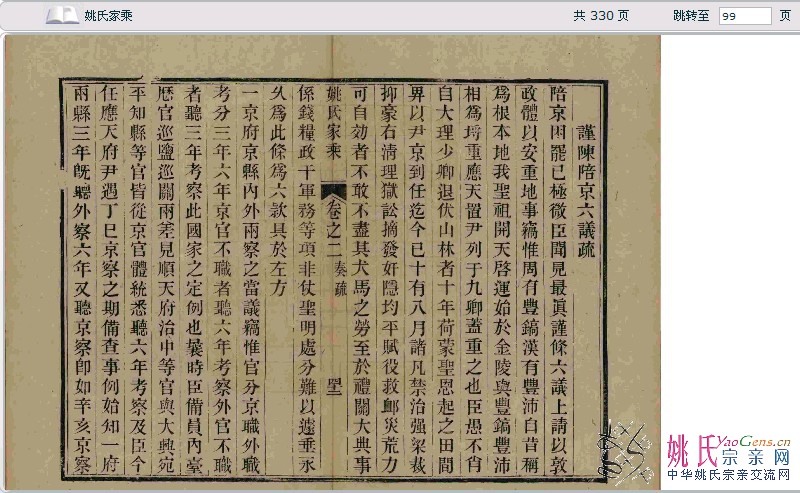 姚氏家乘
共 330 页
跳转至 99 页
謹陳陪京六議疏
陪京困罷已極微臣聞見最眞謹條六議上請以敦
政體以安重地事竊惟周有豐鎬漢有豐沛自昔稱
爲根本地我聖祖開天啓運始於金陵與豐鎬豐沛
相爲埒重應天置尹列于九卿蓋重之也臣愚不肖
自大理少卿退伏山林者十年荷蒙聖恩起之田間
畀以尹京到任迄今已十有八月諸凡禁治强梁裁
抑豪右清理獄訟摘發奸隱均平賦役救邮災荒力
可自効者不敢不盡其犬馬之勞至於禮關大典事
姚氏家乘
卷之二
奏疏
係錢糧政干軍務等項非仗聖明處分難以遽垂永
久爲此條爲六款具於左方
一京府京縣内外兩察之當議竊惟官分京職外職
考分三年六年京官不職者聽六年考察外官不職
者聽三年考察此國家之定例也曩時臣備員内臺
歷官巡鹽巡關兩差見順天府治中等官與大興宛
平知縣等官皆從京官體統悉聽六年考察及臣今
任應天府尹遇丁巳京察之期備查事例始知一府
兩縣三年旣聽外察六年又聽京察卽如辛亥京察
姚氏宗亲网
YaoGens.cn
中华姚氏宗亲交流网